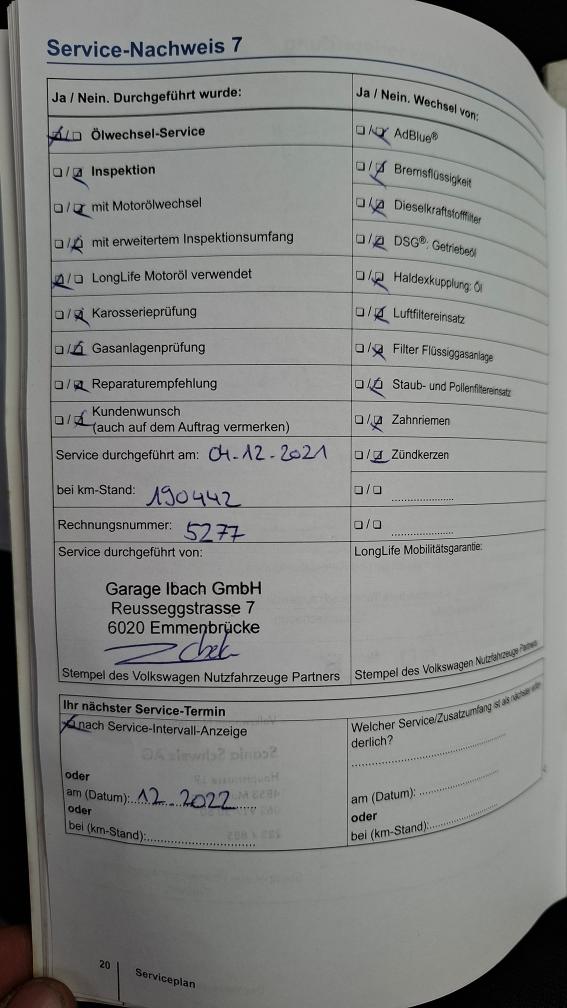 Service-Nachweis 7
Ja / Nein. Durchgeführt wurde:
☒/☐ Ölwechsel-Service
☐/☒ Inspektion
☐/☒ mit Motorölwechsel
☐/☒ mit erweitertem Inspektionsumfang
☒/☐ LongLife Motoröl verwendet
☐/☒ Karosserieprüfung
☐/☒ Gasanlagenprüfung
☐/☒ Reparaturempfehlung
☐/☒ Kundenwunsch
(auch auf dem Auftrag vermerken)
Service durchgeführt am: 04.12.2021
bei km-Stand: 190442
Rechnungsnummer: 5277
Service durchgeführt von:
Garage Ibach GmbH
Reusseggstrasse 7
6020 Emmenbrücke
Stempel des Volkswagen Nutzfahrzeuge Partners
Ja / Nein. Wechsel von:
☐/☒ AdBlue®
☐/☒ Bremsflüssigkeit
☐/☒ Dieselkraftstofffilter
☐/☒ DSG®: Getriebeöl
☐/☒ Haldexkupplung: Öl
☐/☒ Luftfiltereinsatz
☐/☒ Filter Flüssiggasanlage
☐/☒ Staub- und Pollenfiltereinsatz
☐/☒ Zahnriemen
☐/☒ Zündkerzen
☐/☐ ....................
☐/☐ ....................
LongLife Mobilitätsgarantie:
Stempel des Volkswagen Nutzfahrzeuge Partners
Ihr nächster Service-Termin
☒ nach Service-Intervall-Anzeige
oder
am (Datum): 12.2022
oder
bei (km-Stand):....................
Welcher Service/Zusatzumfang ist als nächster
derlich?
....................
am (Datum): ....................
oder
bei (km-Stand):....................
20 Serviceplan